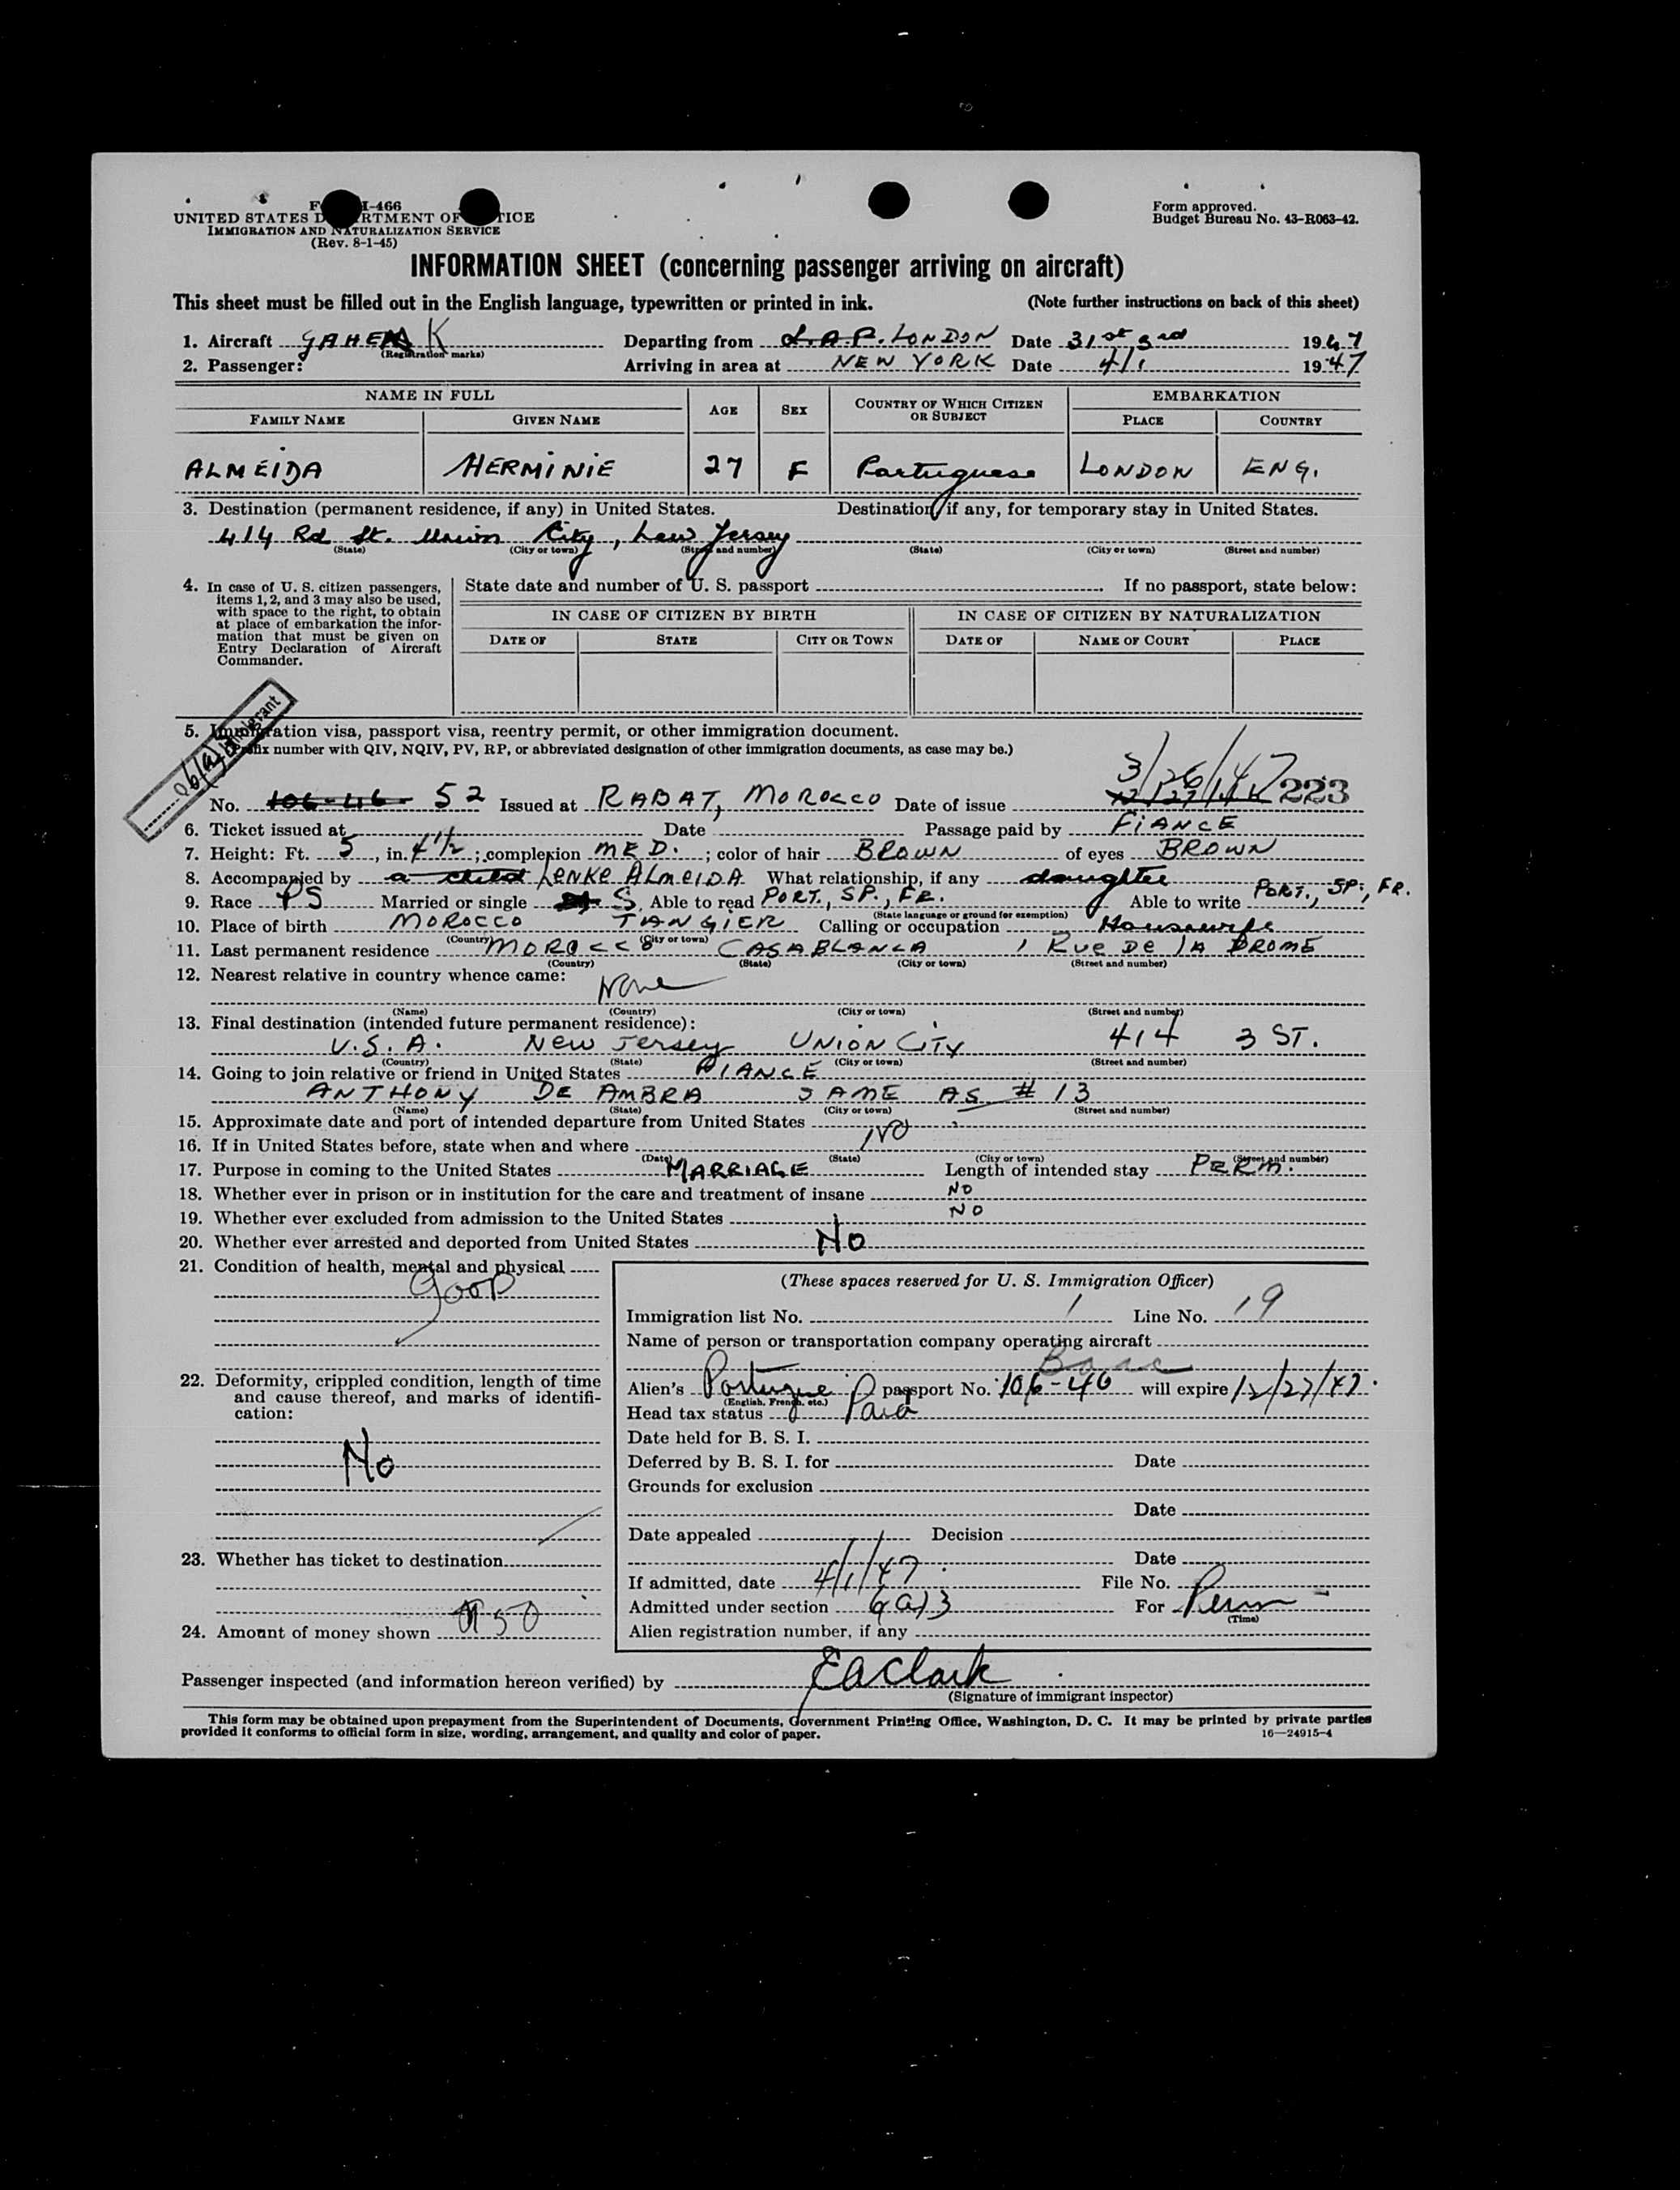 F I-466
UNITED STATES D RTMENT OF TICE
IMMIGRATION AND NATURALIZATION SERVICE
(Rev. 8-1-45)
Form approved.
Budget Bureau No. 43-R063-42.
INFORMATION SHEET (concerning passenger arriving on aircraft)
This sheet must be filled out in the English language, typewritten or printed in ink. (Note further instructions on back of this sheet)
1. Aircraft GAHE K Departing from L.A.P. LONDON Date 31st 3rd 1947
(Registration marks)
2. Passenger: Arriving in area at NEW YORK Date 4/1 1947
NAME IN FULL AGE SEX COUNTRY OF WHICH CITIZEN OR SUBJECT EMBARKATION
FAMILY NAME GIVEN NAME PLACE COUNTRY
ALMEIDA HERMINIE 27 F Portuguese LONDON ENG.
3. Destination (permanent residence, if any) in United States. Destination, if any, for temporary stay in United States.
414 Rd St. Union City, New Jersey
(State) (City or town) (Street and number) (State) (City or town) (Street and number)
4. In case of U. S. citizen passengers, items 1, 2, and 3 may also be used, with space to the right, to obtain at place of embarkation the information that must be given on Entry Declaration of Aircraft Commander.
State date and number of U. S. passport If no passport, state below:
IN CASE OF CITIZEN BY BIRTH IN CASE OF CITIZEN BY NATURALIZATION
DATE OF STATE CITY OR TOWN DATE OF NAME OF COURT PLACE
5. Immigration visa, passport visa, reentry permit, or other immigration document.
(Prefix number with QIV, NQIV, PV, RP, or abbreviated designation of other immigration documents, as case may be.)
6(a)3 Immigrant
3/26/47 223
No. 106-46 52 Issued at RABAT, MOROCCO Date of issue
6. Ticket issued at Date Passage paid by FIANCE
7. Height: Ft. 5, in. 4 1/2; complexion MED.; color of hair BROWN of eyes BROWN
8. Accompanied by a child LENKE ALMEIDA What relationship, if any daughter
9. Race PS Married or single S. Able to read PORT., SP., FR. Able to write PORT., SP., FR.
(State language or ground for exemption)
10. Place of birth MOROCCO TANGIER Calling or occupation Housewife
(Country) (City or town)
11. Last permanent residence MOROCCO CASABLANCA 1 RUE DE LA DROME
(Country) (State) (City or town) (Street and number)
12. Nearest relative in country whence came: None
(Name) (Country) (City or town) (Street and number)
13. Final destination (intended future permanent residence):
U.S.A. New Jersey UNION CITY 414 3 ST.
(Country) (State) (City or town) (Street and number)
14. Going to join relative or friend in United States FIANCE
ANTHONY DE AMBRA SAME AS # 13
(Name) (State) (City or town) (Street and number)
15. Approximate date and port of intended departure from United States
16. If in United States before, state when and where NO
(Date) (State) (City or town) (Street and number)
17. Purpose in coming to the United States MARRIAGE Length of intended stay PERM.
18. Whether ever in prison or in institution for the care and treatment of insane NO
19. Whether ever excluded from admission to the United States NO
20. Whether ever arrested and deported from United States No
21. Condition of health, mental and physical
GOOD
22. Deformity, crippled condition, length of time and cause thereof, and marks of identification:
No
23. Whether has ticket to destination
24. Amount of money shown 50
(These spaces reserved for U. S. Immigration Officer)
Immigration list No. 1 Line No. 19
Name of person or transportation company operating aircraft
Alien's Portugue passport No. 106-46 will expire 12/27/47.
(English, French, etc.)
Head tax status Paid
Date held for B. S. I.
Deferred by B. S. I. for Date
Grounds for exclusion
Date
Date appealed Decision
Date
If admitted, date 4/1/47. File No.
Admitted under section 6(a)3 For Perm
(Time)
Alien registration number, if any
Passenger inspected (and information hereon verified) by EAClark
(Signature of immigrant inspector)
This form may be obtained upon prepayment from the Superintendent of Documents, Government Printing Office, Washington, D. C. It may be printed by private parties
provided it conforms to official form in size, wording, arrangement, and quality and color of paper. 16—24915-4